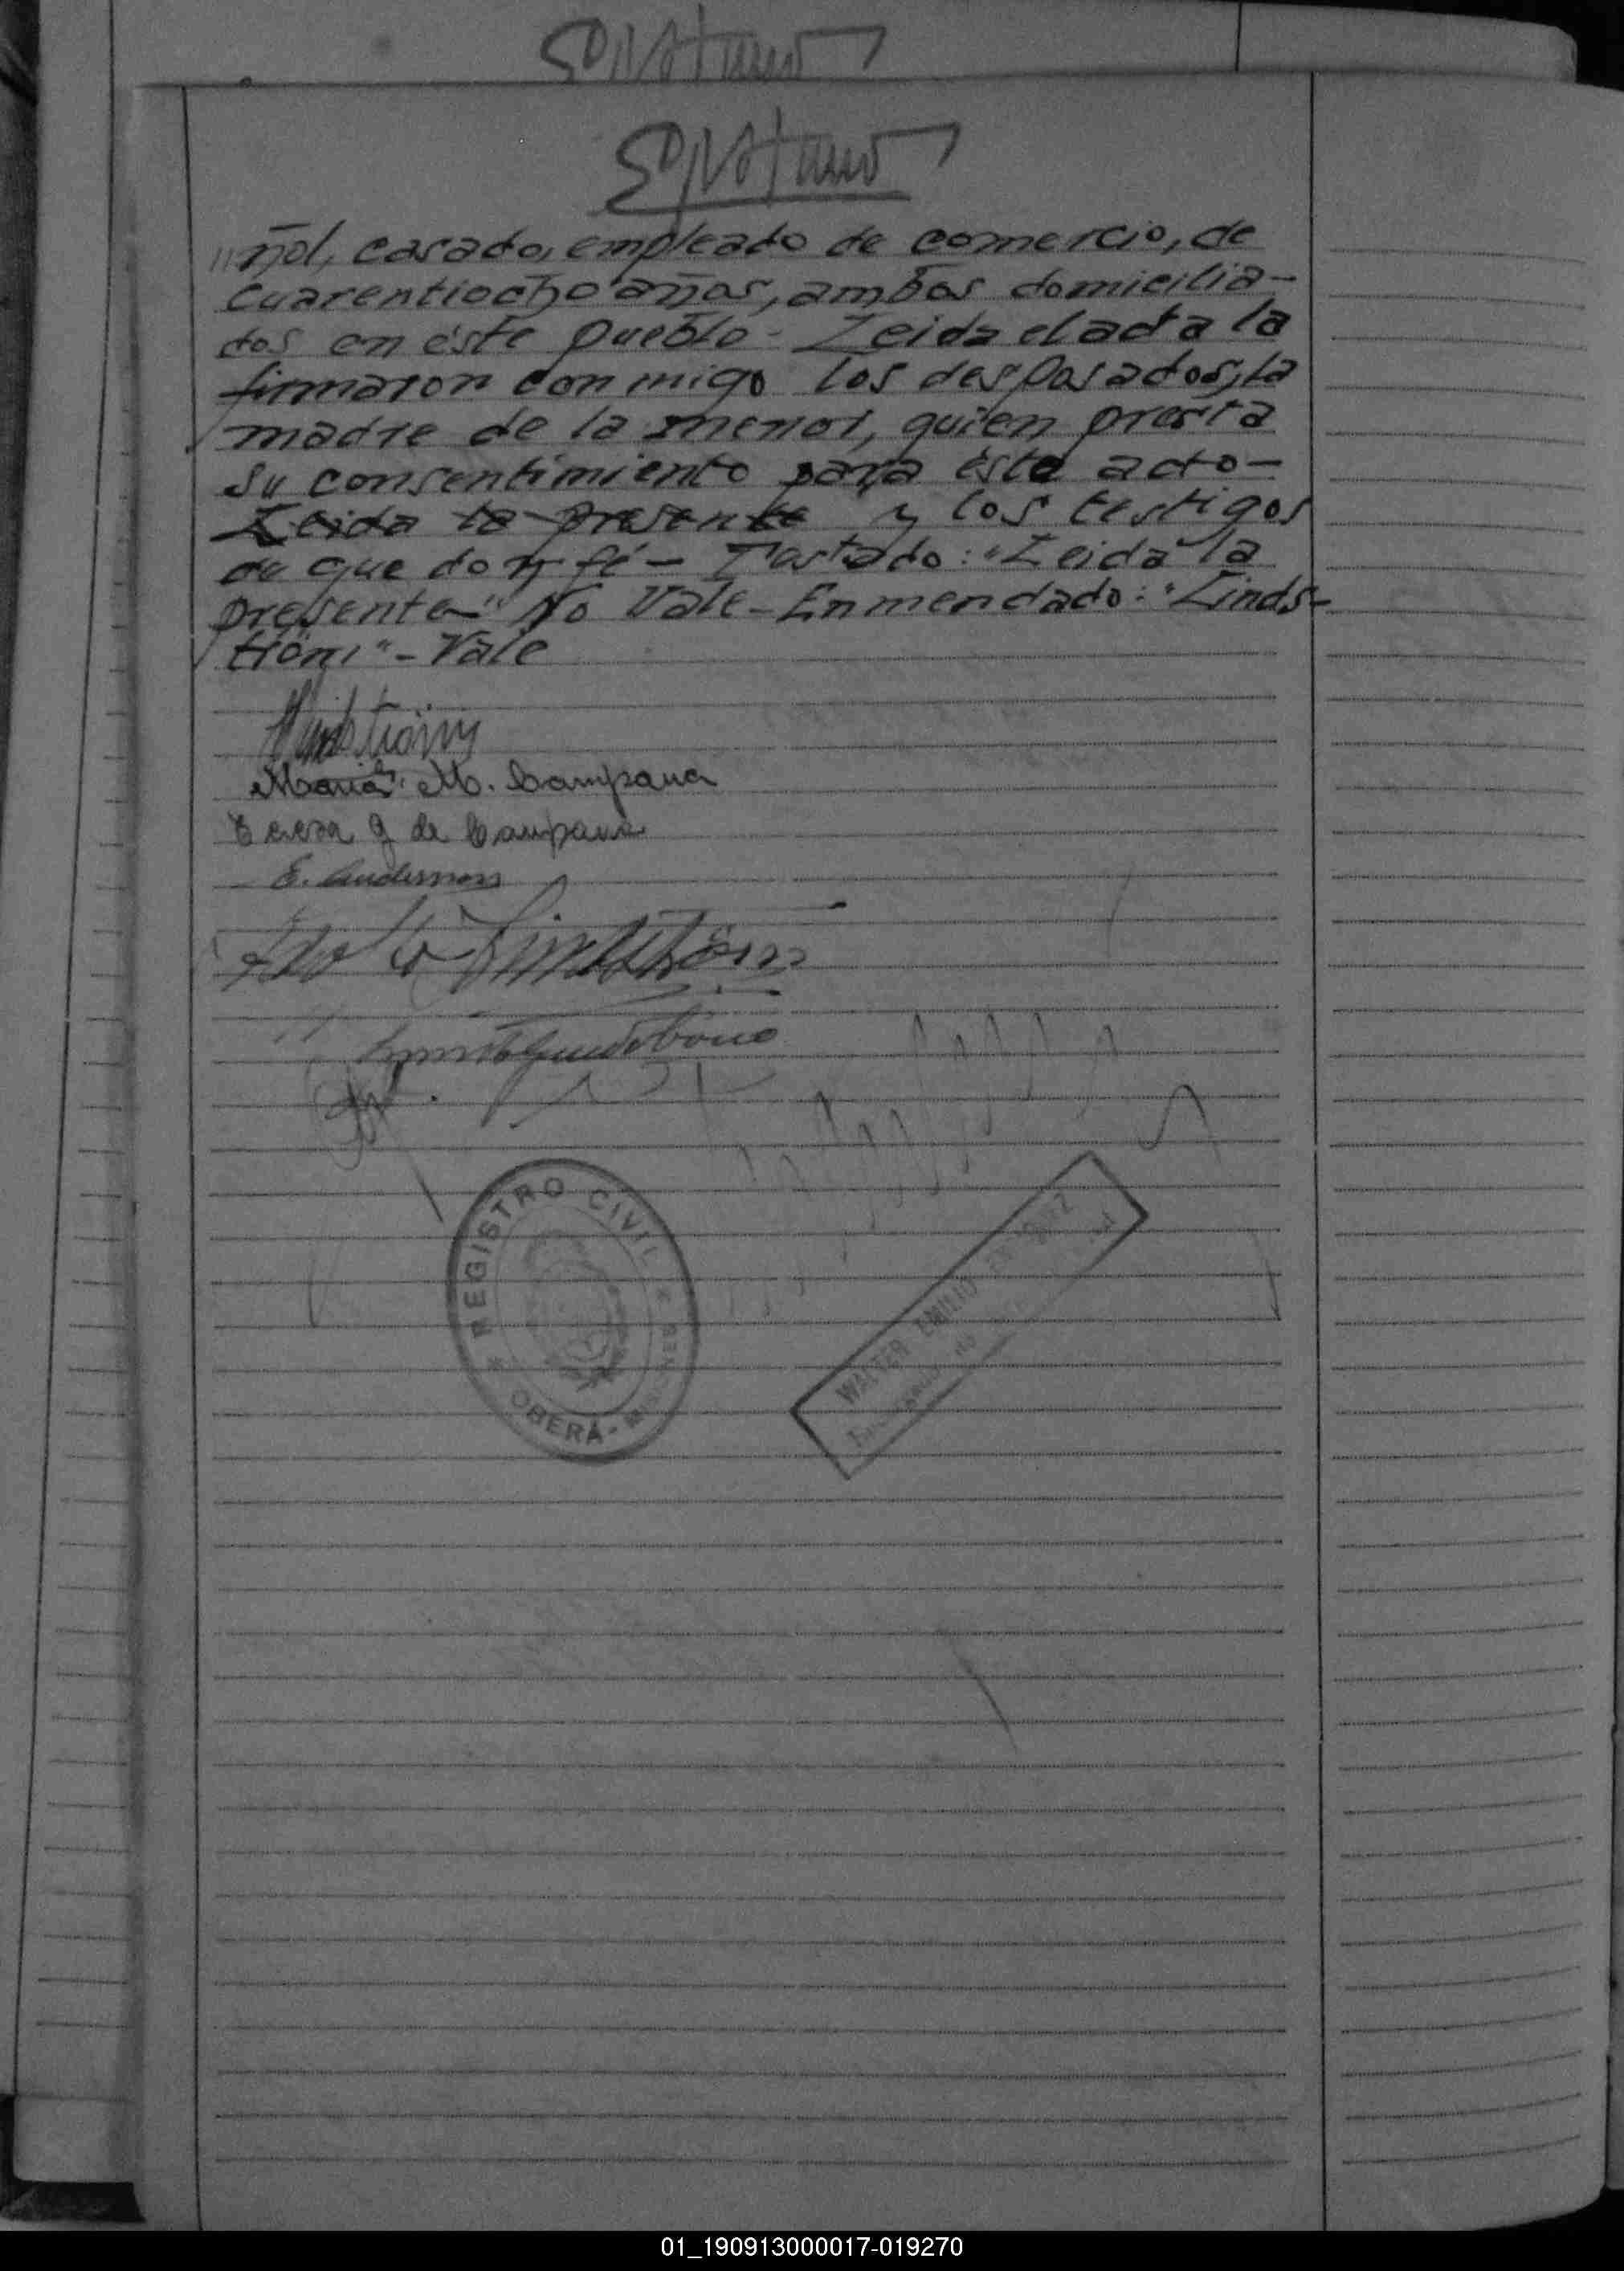 "ñol, casado, empleado de comercio, de
cuarentiocho años, ambos domicilia-
dos en éste pueblo - Leida el acta la
firmaron conmigo los desposados, la
madre de la menor, quien presta
su consentimiento para éste acto -
Leida la presente y los testigos
de que doy fé - Tastado: "Leida la
presente" No Vale - Enmendado: "Linds-
tröm" - Vale
María M. Campana
Teresa G de Campana
E. Andersson
Lindström
REGISTRO CIVIL
OBERÁ - MISIONES
WALTER EMILIO
Encargado
01_190913000017-019270